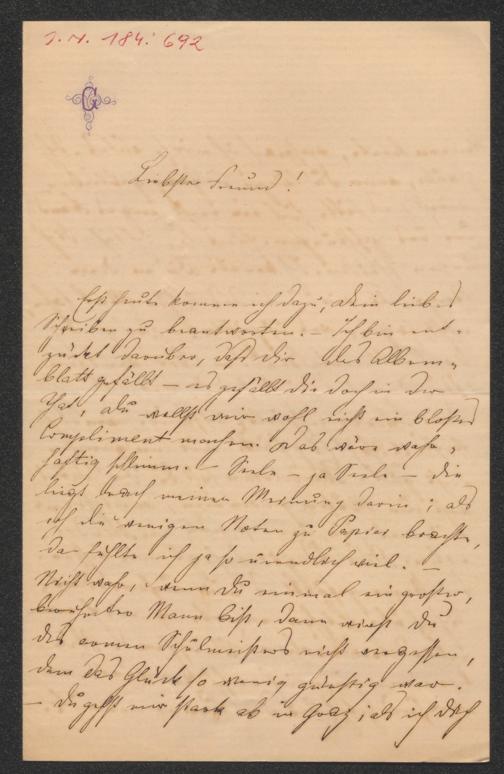 J. N. 184.692
G
Liebster Freund!
Erst heute komme ich dazu, Dein liebes
Schreiben zu beantworten. – Ich bin ent-
zückt darüber, daß dir das Album-
blatt gefällt – es gefällt dir doch in der
That, du willst mir wohl nicht ein bloßes
Compliment machen. Das wäre wahr-
haftig schlimm. – Seele – ja Seele – die
liegt nach meiner Meinung darin; als
ich die wenigen Noten zu Papier brachte,
da fühlte ich ja so unendlich viel. –
Nicht wahr, wenn Du einmal ein großer,
berühmter Mann bist, dann wirst Du
des armen Schulmeisters nicht vergessen,
dem das Glück so wenig günstig war.
– Du gehst mir stark ab in Graz; als ich Dich